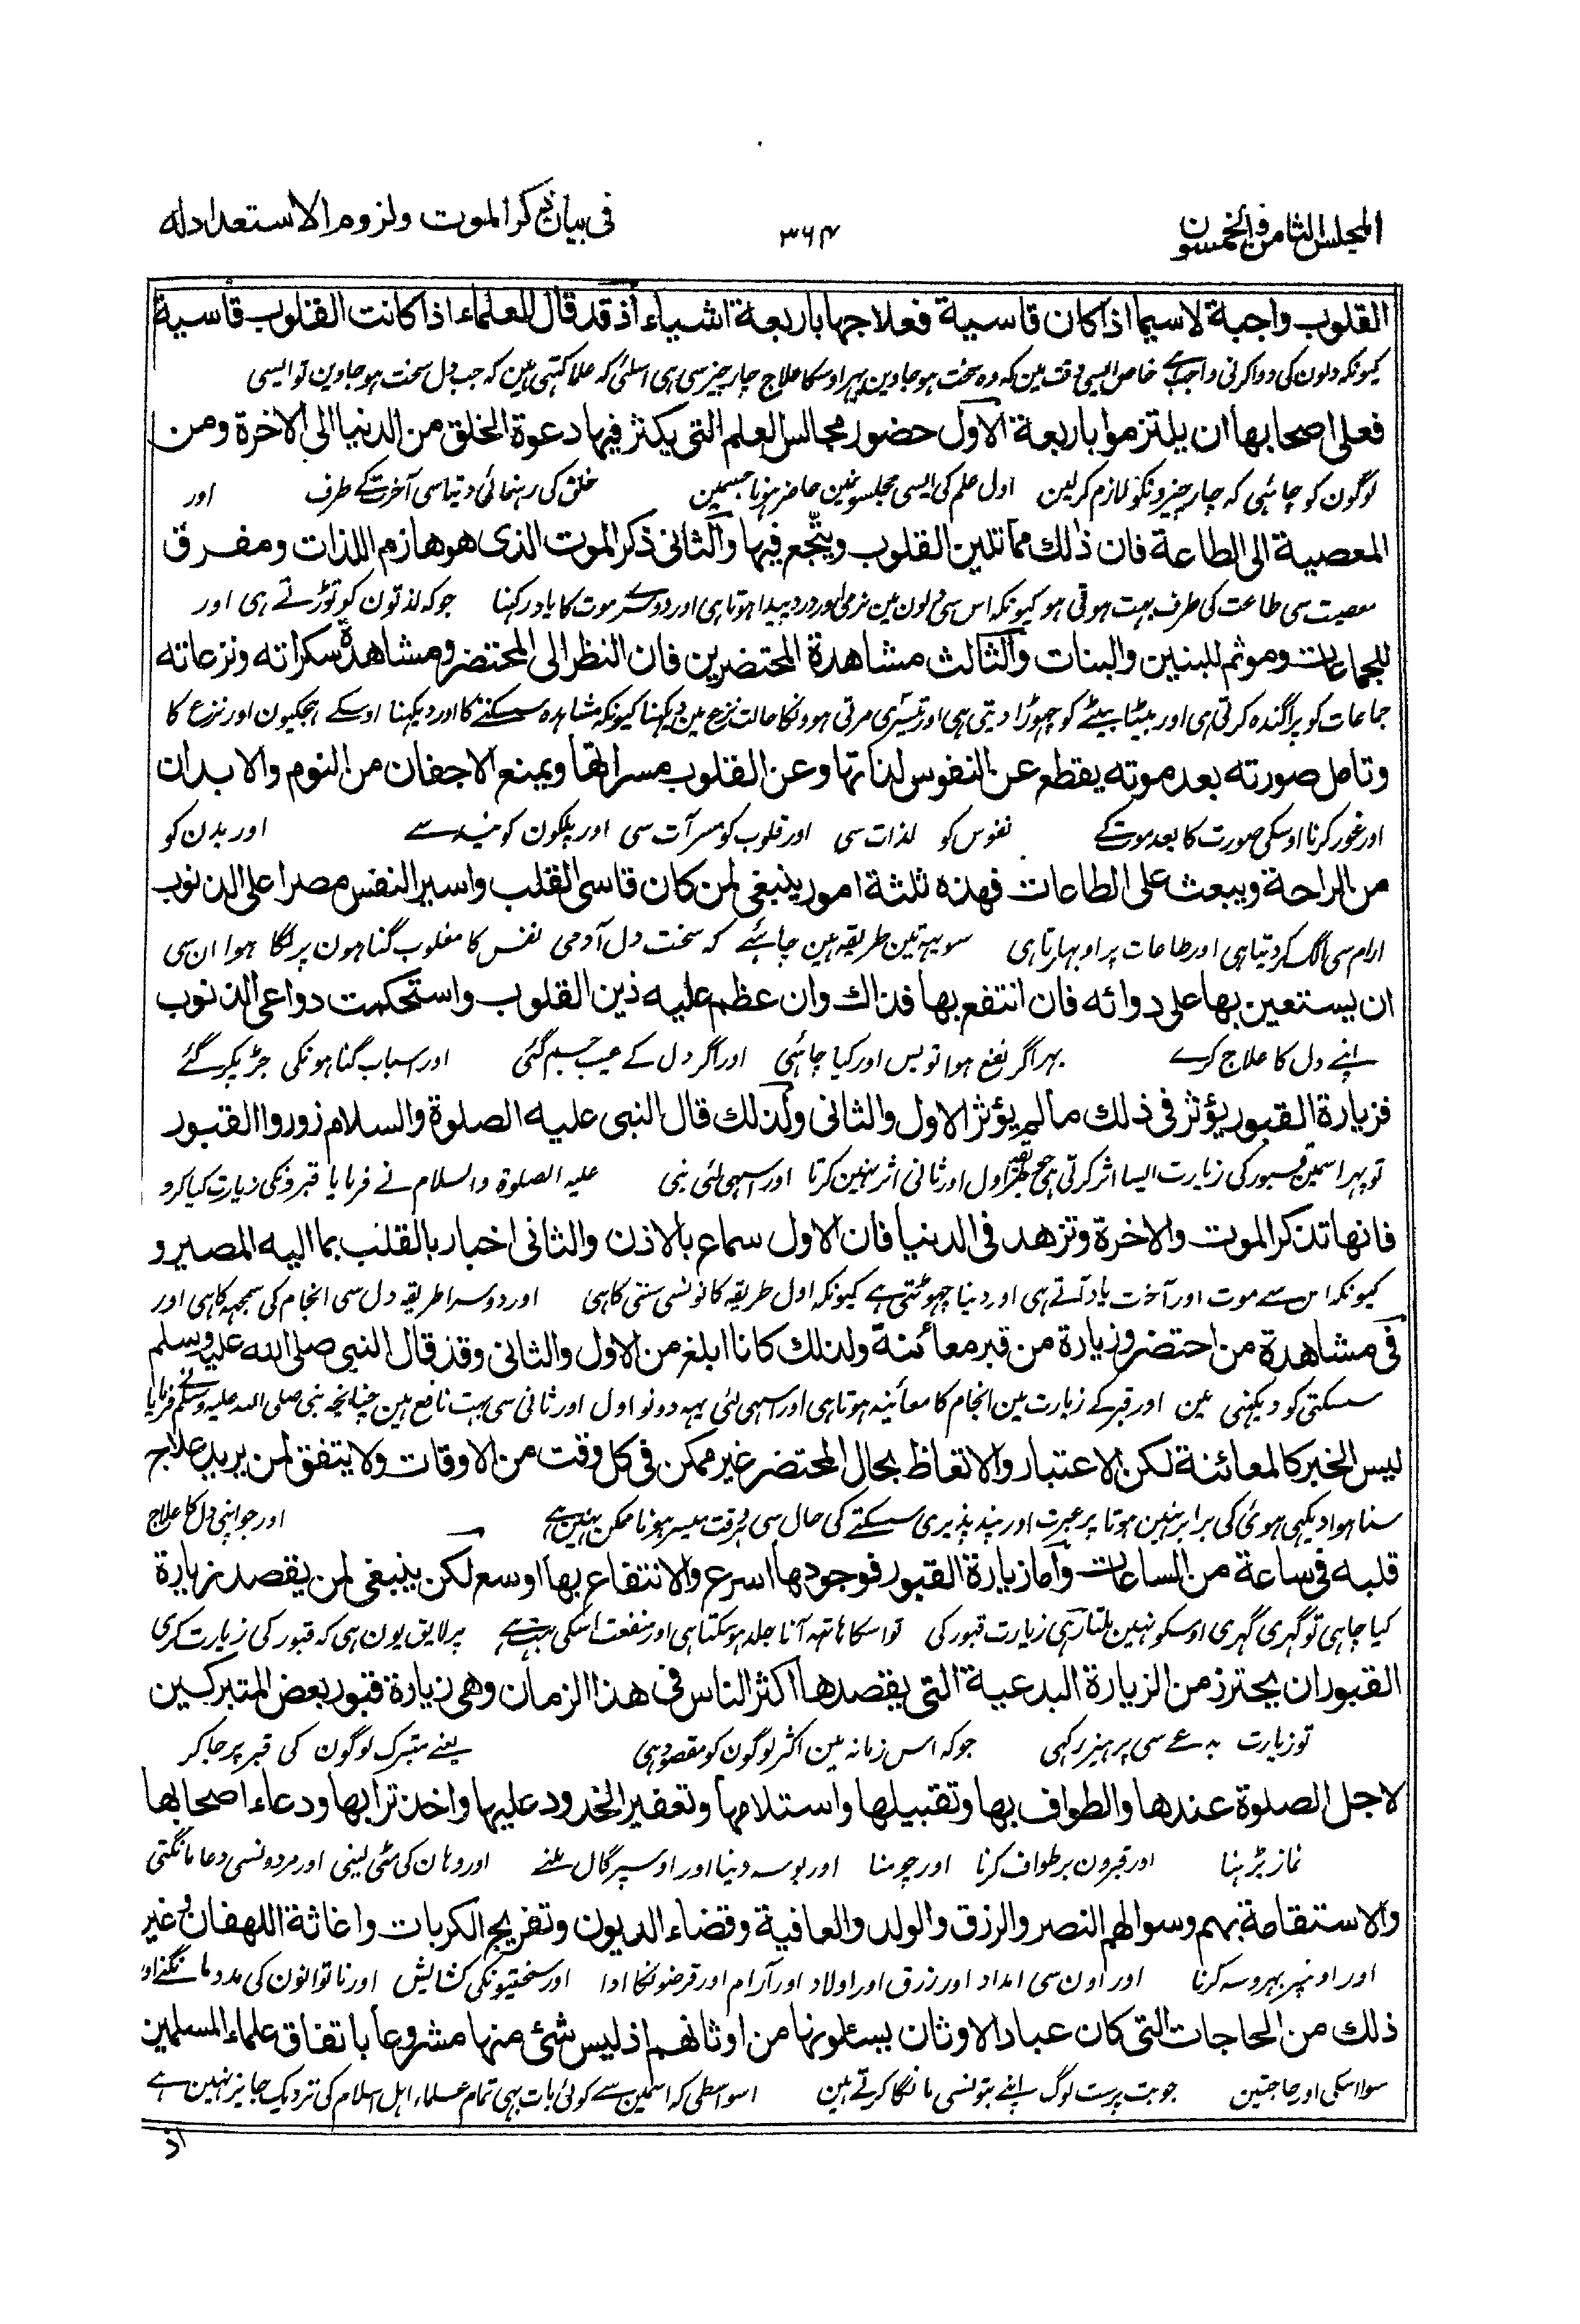 المجلس الثامن والخمسون
۳۶۴
فی بیان ذکر الموت ولزوم الاستعداد له
القلوب واجبة لاسیما اذا کان قاسیة فعلاجها باربعة اشیاء اذ قد قال العلماء اذا کانت القلوب قاسیة
کیونکہ دلون کی دوا کرنی واجب ہے خاص ایسی وقت مین کہ وہ سخت ہو جاوین پہر اوسکا علاج چار چیز سی ہی اسلئی کہ علما کہتی ہین کہ جب دل سخت ہو جاوین تو ایسی
فعلی اصحابها ان یلتزموا باربعة الاول حضور مجالس العلم التی یکثر فیها دعوة الخلق من الدنیا الی الاخرة ومن
لوگون کو چاہئی کہ چار چیزونکو لازم کر لین اول علم کی ایسی مجلسونمین حاضر ہونا جسمین خلق کی رہنمائی دنیا سی آخرت کے طرف اور
المعصیة الی الطاعة فان ذلك مما تلین القلوب وینجع فیها والثانی ذکر الموت الذی هو هازم اللذات ومفرق
معصیت سی طاعت کی طرف بہت ہوتی ہو کیونکہ اس سی دلون مین نرمی اور درد پیدا ہوتا ہی اور دوسرے موت کا یاد رکہنا جو کہ لذتون کو توڑتے ہی اور
للجماعات وموتم للبنین والبنات والثالث مشاهدة المحتضرین فان النظر الی المحتضر ومشاهدة سکراته ونزعاته
جماعات کو پراگندہ کرتی ہی اور بیٹا بیٹے کو چہوڑا دیتی ہی اور تیسری مرتی ہوونکا حالت نزع مین دیکہنا کیونکہ مشاہدہ سسکنے کا اور دیکہنا اوسکے ہچکیون اور نزع کا
وتامل صورته بعد موته یقطع عن النفوس لذاتها وعن القلوب مسراتها ویمنع الاجفان من النوم والابدان
اور غور کرنا اوسکی صورت کا بعد موت کے نفوس کو لذات سی اور قلوب کو مسرآت سی اور پلکون کو نیند سے اور بدن کو
من الراحة ویبعث علی الطاعات فهذه ثلثة امور ینبغی لمن کان قاسی القلب واسیر النفس مصرا علی الذنوب
ارام سی الگ کر دیتا ہی اور طاعات پر اوبہارتا ہی سو یہہ تین طریقہ ہین چاہئے کہ سخت دل آدمی نفس کا مغلوب گناہون پر لگا ہوا ان سی
ان یستعین بها علی دوائه فان انتفع بها فذاك وان عظم علیه ذین القلوب واستحکمت دواعی الذنوب
اپنے دل کا علاج کرے پہر اگر نفع ہوا تو بس اور کیا چاہئی اور اگر دل کے عیب جسم گئی اور اسباب گناہونکی جڑ پکڑ گئے
فزیارة القبور یؤثر فی ذلك ما لم یؤثر الاول والثانی ولذلك قال النبی علیه الصلوة والسلام زوروا القبور
تو پہر اسمین قبور کی زیارت ایسا اثر کرتی ہی اول اور ثانی اثر نہین کرتا اور اسیہی لئی نبی علیہ الصلوة والسلام نے فرمایا قبرونکی زیارت کیا کرو
فانها تذکر الموت والاخرة وتزهد فی الدنیا فان الاول سماع بالاذن والثانی اخبار بالقلب بما الیه المصیر و
کیونکہ اس سے موت اور آخرت یاد آتے ہی اور دنیا چہوٹتی ہے کیونکہ اول طریقہ کانونسی سنتی کا ہی اور دوسرا طریقہ دل سی انجام کی سمجہہ کا ہی اور
فی مشاهدة من احتضر وزیارة من قبر معائنة ولذلك کانا ابلغ من الاول والثانی وقد قال النبی صلی الله علیه وسلم
سسکتی کو دیکہنی مین اور قبر کے زیارت مین انجام کا معائنہ ہوتا ہی اور اسیہی لئی یہہ دونو اول اور ثانی سی بہت نافع ہین چنانچہ نبی صلی اللہ علیہ وسلم نے فرمایا
لیس الخبر کالمعائنة لکن الاعتبار والاتعاظ بحال المحتضر غیر ممکن فی کل وقت من الاوقات ولا یتفق لمن یرید علاج
سنا ہوا دیکہی ہوئی کی برابر نہین ہوتا پر عبرت اور پند پذیری سسکتے کی حال سی ہر وقت میسر ہونا ممکن نہین ہے اور جو اپنی دل کا علاج
قلبه فی ساعة من الساعات واما زیارة القبور فوجودها اسرع والانتفاع بها اوسع لکن ینبغی لمن یقصد زیارة
کیا چاہی تو گہری گہری اوسکو نہین ملتا رہی زیارت قبور کی تو اسکا ہاتہہ آنا جلد ہو سکتا ہی اور منفعت اسکی بہت ہے پر لایق یون ہی کہ قبور کی زیارت کری
القبور ان یحترز من الزیارة البدعیة التی یقصدها اکثر الناس فی هذا الزمان وهی زیارة قبور بعض المتبرکین
تو زیارت بدعے سی پرہیز رکہی جو کہ اس زمانہ مین اکثر لوگون کو مقصود ہی یعنے متبرک لوگون کی قبر پر جا کر
لاجل الصلوة عندها والطواف بها وتقبیلها واستلامها وتعفیر الخدود علیها واخذ ترابها ودعاء اصحابها
نماز پڑہنا اور قبرون پر طواف کرنا اور چومنا اور بوسہ دینا اور اوسپر گال ملنے اور وہان کی مٹی لینی اور مردونسی دعا مانگتی
والاستقامة بهم وسوالهم النصر والرزق والولد والعافیة وقضاء الدیون وتفریج الکربات واغاثة اللهفان وغیر
اور اونپر بہروسہ کرنا اور اون سی امداد اور زرق اور اولاد اور آرام اور قرضونکا ادا اور سختیونکی کشایش اور ناتوانون کی مدد مانگنے اور
ذلك من الحاجات التی کان عباد الاوثان یسئلونها من اوثانهم اذ لیس شئ منها مشروعا باتفاق علماء المسلمین
سوا اسکی اور حاجتین جو بت پرست لوگ اپنے بتونسی مانگا کرتے ہین اسواسطی کہ اسمین سے کوئی بات بہی تمام علماء اہل اسلام کی نزدیک جایز نہین ہے
اذ